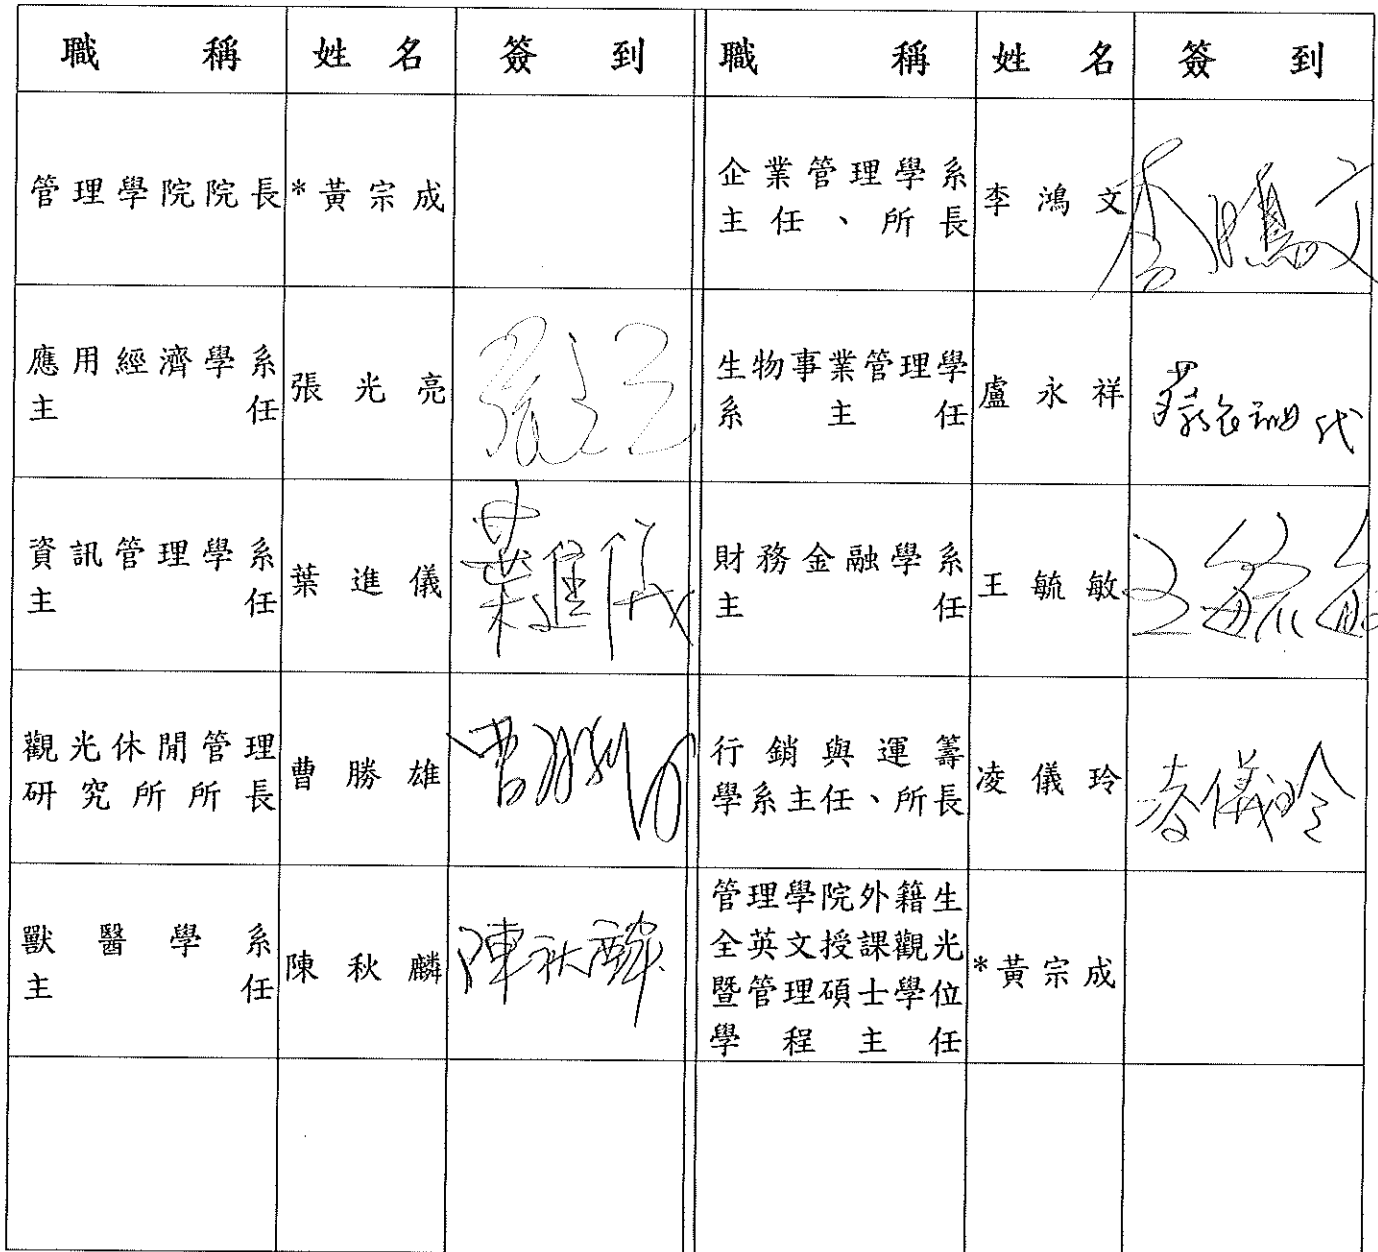 職稱 姓名 簽到 職稱 姓名 簽到
管理學院院長 *黃宗成
企業管理學系
主任、所長 李鴻文 李鴻文
應用經濟學系
主任 張光亮
生物事業管理學
系主任 盧永祥 代
資訊管理學系
主任 葉進儀 葉進儀
財務金融學系
主任 王毓敏 王毓敏
觀光休閒管理
研究所所長 曹勝雄 曹勝雄
行銷與運籌
學系主任、所長 凌儀玲 凌儀玲
獸醫學系
主任 陳秋麟 陳秋麟
管理學院外籍生
全英文授課觀光
暨管理碩士學位
學程主任 *黃宗成